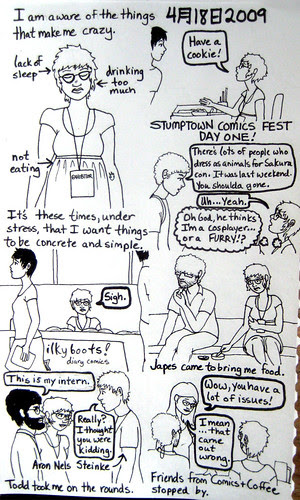 I am aware of the things
that make me crazy.
4月18日2009
lack of
sleep
drinking
too
much
not
eating
EXHIBITOR
It's these times, under
stress, that I want things
to be concrete and simple.
Have a
cookie!
STUMPTOWN COMICS FEST
DAY ONE!
There's lots of people who
dress as animals for Sakura
con. It was last weekend.
You shoulda gone.
Uh... Yeah.
Oh God, he thinks
I'm a cosplayer...
or a FURRY!?
Sigh.
ilky boots!
diary comics
Japes came to bring me food.
This is my intern.
Really?
I thought
you were
kidding.
Aron Nels Steinke
Todd took me on the rounds.
Wow, you have a
lot of issues!
I mean
...that
came out
wrong.
Friends from Comics+Coffee
stopped by.